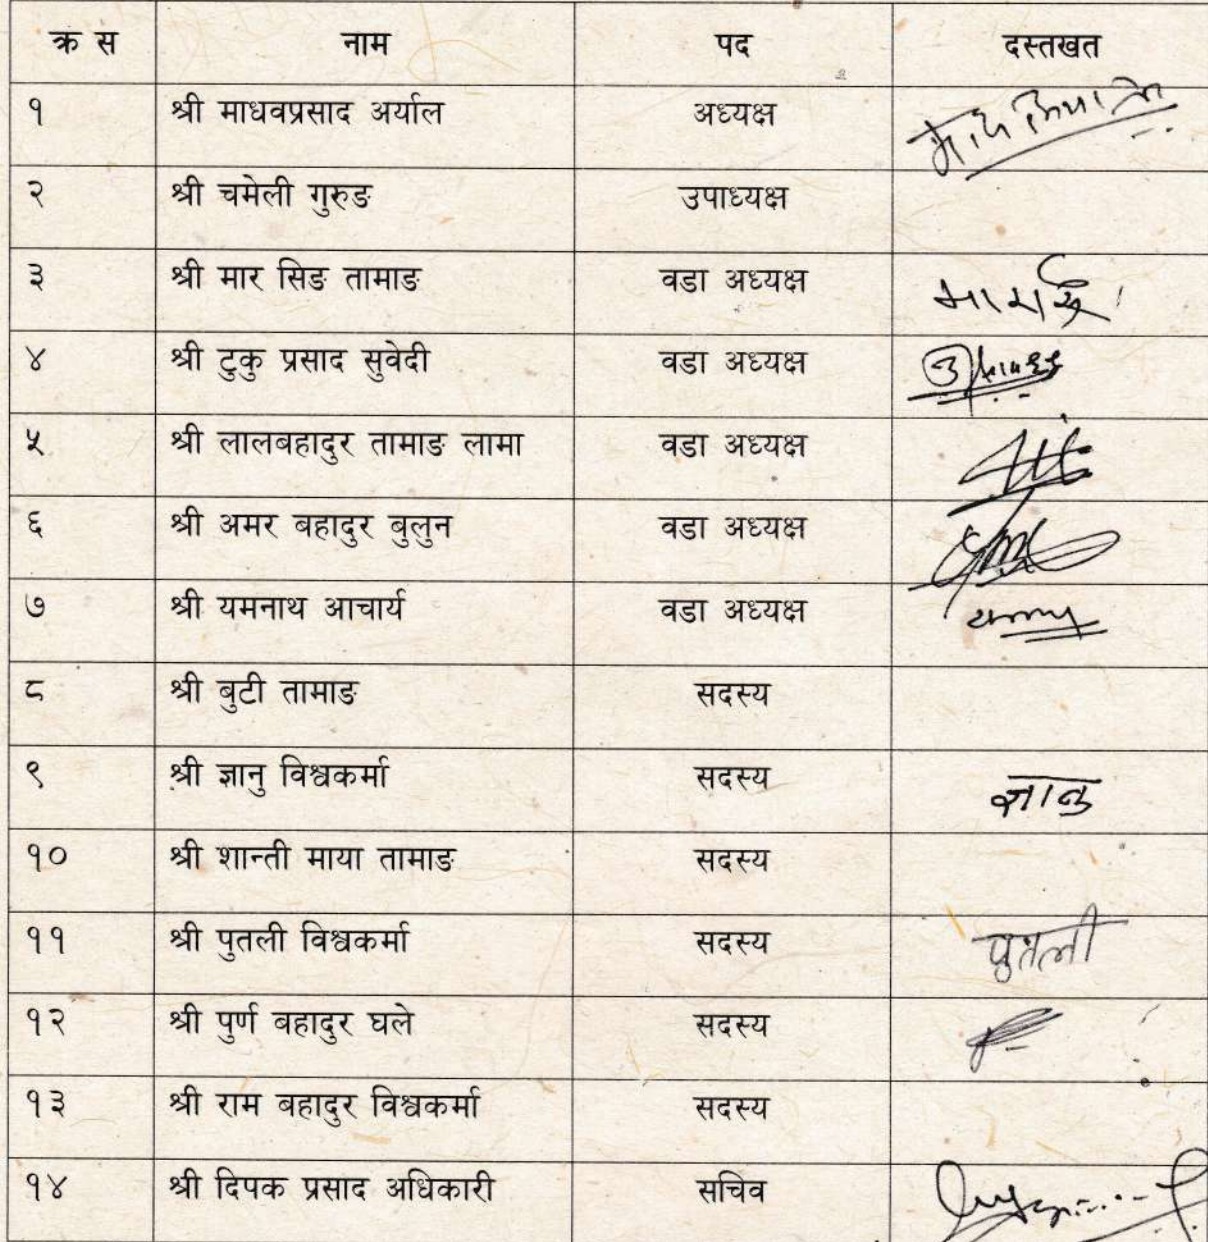 क्र स नाम पद दस्तखत
१ श्री माधवप्रसाद अर्याल अध्यक्ष
२ श्री चमेली गुरुङ उपाध्यक्ष
३ श्री मार सिङ तामाङ वडा अध्यक्ष
४ श्री टुकु प्रसाद सुवेदी वडा अध्यक्ष
५ श्री लालबहादुर तामाङ लामा वडा अध्यक्ष
६ श्री अमर बहादुर बुलुन वडा अध्यक्ष
७ श्री यमनाथ आचार्य वडा अध्यक्ष
८ श्री बुटी तामाङ सदस्य
९ श्री ज्ञानु विश्वकर्मा सदस्य ज्ञानु
१० श्री शान्ती माया तामाङ सदस्य
११ श्री पुतली विश्वकर्मा सदस्य पुतली
१२ श्री पुर्ण बहादुर घले सदस्य
१३ श्री राम बहादुर विश्वकर्मा सदस्य
१४ श्री दिपक प्रसाद अधिकारी सचिव